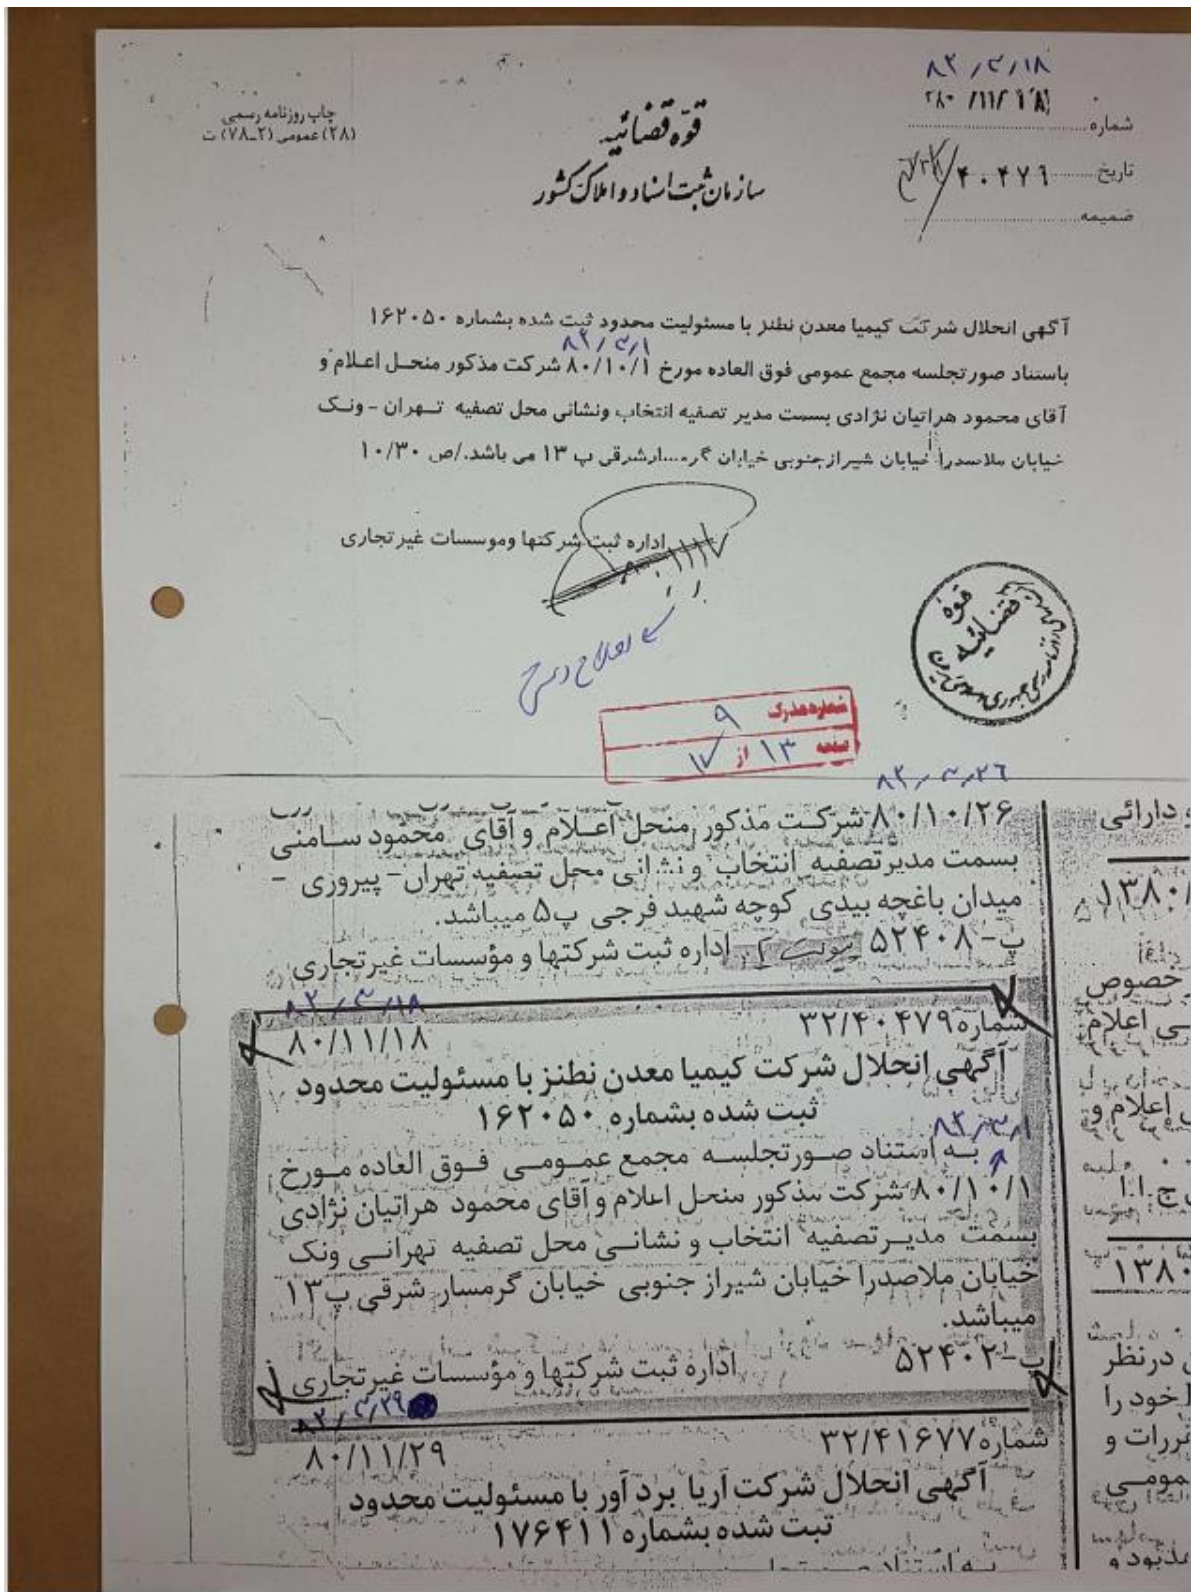 ۸۳/۳/۱۸
۲۸۰/۱۱/۱۸
شماره
تاریخ ۴۰۴۷۹/۳۲
ضمیمه
قوّه قضائیه
سازمان ثبت اسناد و املاک کشور
چاپ روزنامه رسمی
(۲۸) عمومی (۲ـ۷۸) ت
آگهی انحلال شرکت کیمیا معدن نطنز با مسئولیت محدود ثبت شده بشماره ۱۶۲۰۵۰
۸۳/۳/۱
باستناد صورتجلسه مجمع عمومی فوق العاده مورخ ۸۰/۱۰/۱ شرکت مذکور منحـل اعـلام و
آقای محمود هراتیان نژادی بسمت مدیر تصفیه انتخاب ونشانی محل تصفیه تـهران - ونـک
خیابان ملاصدرا خیابان شیرازجنوبی خیابان گرمسارشرقی پ ۱۳ می باشد./ص ۱۰/۳۰
اداره ثبت شرکتها وموسسات غیرتجاری
قوّه قضائیه
اصلاح
شماره مدرک ۹
صفحه ۱۳ از ۱۷
۸۳/۳/۲۶
۸۰/۱۰/۲۶ شرکـت مذکور منحل اعـلام و آقای محمود سـامنی
بسمت مدیرتصفیه انتخاب و نشانی محل تصفیه تهران- پیروزی -
میدان باغچه بیدی کوچه شهید فرجی پ۵ میباشد.
پ- ۵۲۴۰۸ اداره ثبت شرکتها و مؤسسات غیرتجاری
۸۳/۳/۱۸
شماره ۳۲/۴۰۴۷۹
۸۰/۱۱/۱۸
آگهی انحلال شرکت کیمیا معدن نطنز با مسئولیت محدود
ثبت شده بشماره ۱۶۲۰۵۰
۸۳/۳/۱
به استناد صـورتجلسـه مجمع عمـومـی فـوق العاده مـورخ
۸۰/۱۰/۱ شرکت مذکور منحل اعلام و آقای محمود هراتیان نژادی
بسمت مدیـرتصفیه انتخاب و نشانـی محل تصفیه تهرانـی ونک
خیابان ملاصدرا خیابان شیراز جنوبی خیابان گرمسار شرقی پ۱۳
میباشد.
پ- ۵۲۴۰۲ اداره ثبت شرکتها و مؤسسات غیرتجاری
۸۳/۳/۲۹
شماره ۳۲/۴۱۶۷۷
۸۰/۱۱/۲۹
آگهی انحلال شرکت آریا برد آور با مسئولیت محدود
ثبت شده بشماره ۱۷۶۴۱۱
و دارائی
۱۳۸۰/
خصوص
اعلام
اعلام و
۱۳۸۰
درنظر
خود را